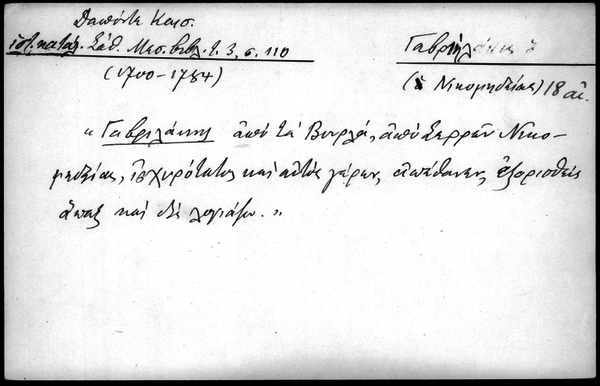 Δαπόντε Καισ.
ἱστ. κατάλ. Σάθ. Μεσ. βιβλ. τ. 3, σ. 110
(1700-1784)
Γαβριηλάκης ὁ
(ὁ Νικομηδείας) 18 αἰ.
« Γαβριλάκης ἀπὸ τὰ Βουρλά, ἀπὸ Σερρῶν Νικο-
μηδείας, ἰσχυρότατος καὶ αὐτὸς γέρων, ἀπέθανεν, ἐξορισθεὶς
ἅπαξ καὶ δὶς λογιάζω. »